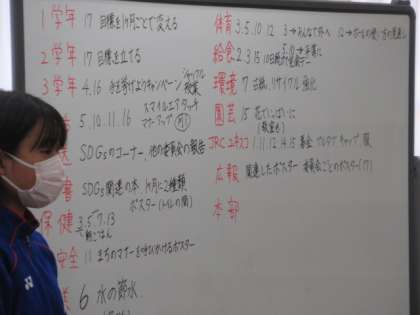 1学年 17 目標を1ヶ月ごとで変える
2学年 17 目標を立てる
3学年 4.16
スマイルエアタッチ
5.10.11.16 マナーアップ
送 SDGsのコーナー、他の委員会の報告
書 SDGs関連の本 1ヶ月に2種類
ポスター(トイレの間)
保健 3.5.7.13
朝ごはん
安全 11 まちのマナーを呼びかけるポスター
6 水の節水
体育 3.5.10.12 3→みんなで外へ 12→ボールの使い方の見直し
給食 2.3.15
環境 7 古紙、リサイクル 強化
園芸 15 花でいっぱいに
JRCユネスコ 1.11.12.14.15 募金 プルタブ、キャップ、服
広報 関連したポスター 委員会ごとのポスター(17)
本部